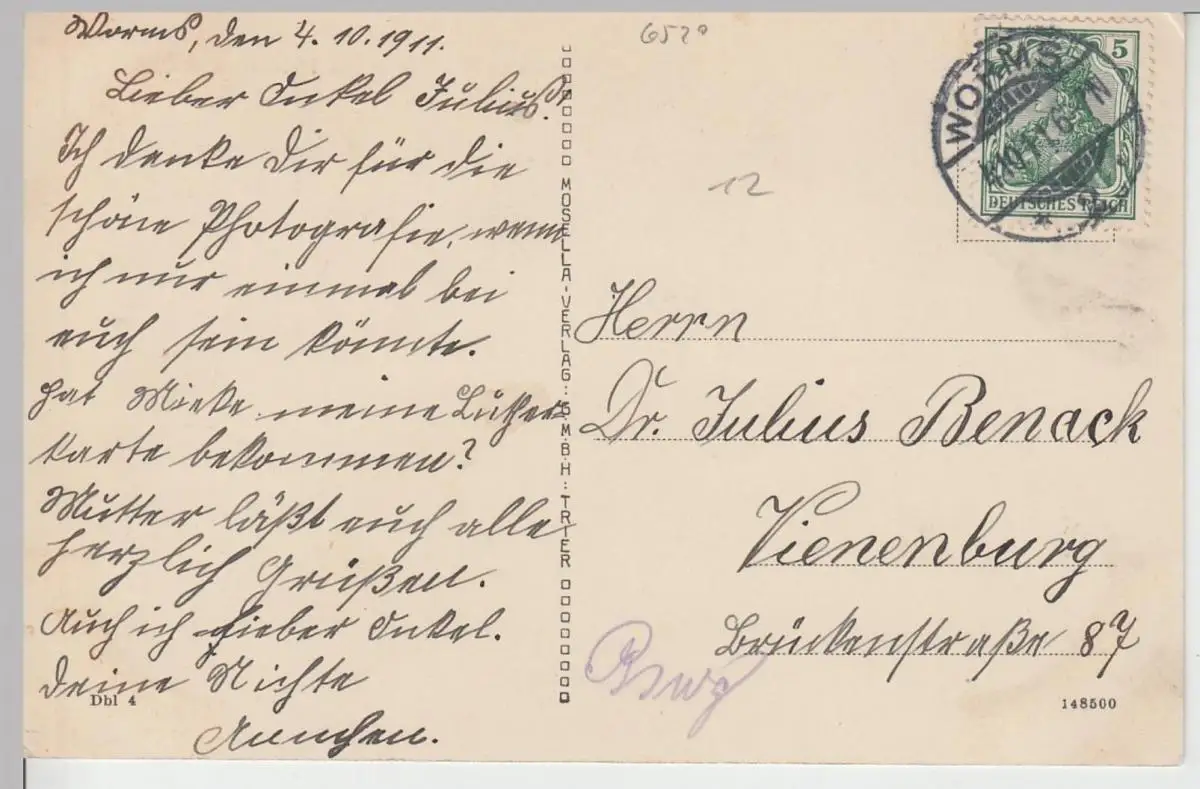 Worms, den 4.10.1911.
Lieber Onkel Julius!
Ich danke Dir für die
schöne Photografie, wenn
ich nur einmal bei
euch sein könnte.
hat Mieke meine Luther
karte bekommen?
Mutter läßt euch alle
herzlich Grüßen.
Auch ich lieber Onkel.
Deine Nichte
Annchen.
Dbl 4
MOSELLA-VERLAG: G.M.B.H: TRIER
6520
12
WORMS
5
DEUTSCHES REICH
Herrn
Dr. Julius Benack
Vienenburg
Brückenstraße 87
148500